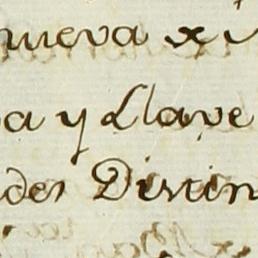 nueva
a y Llave
des Distin